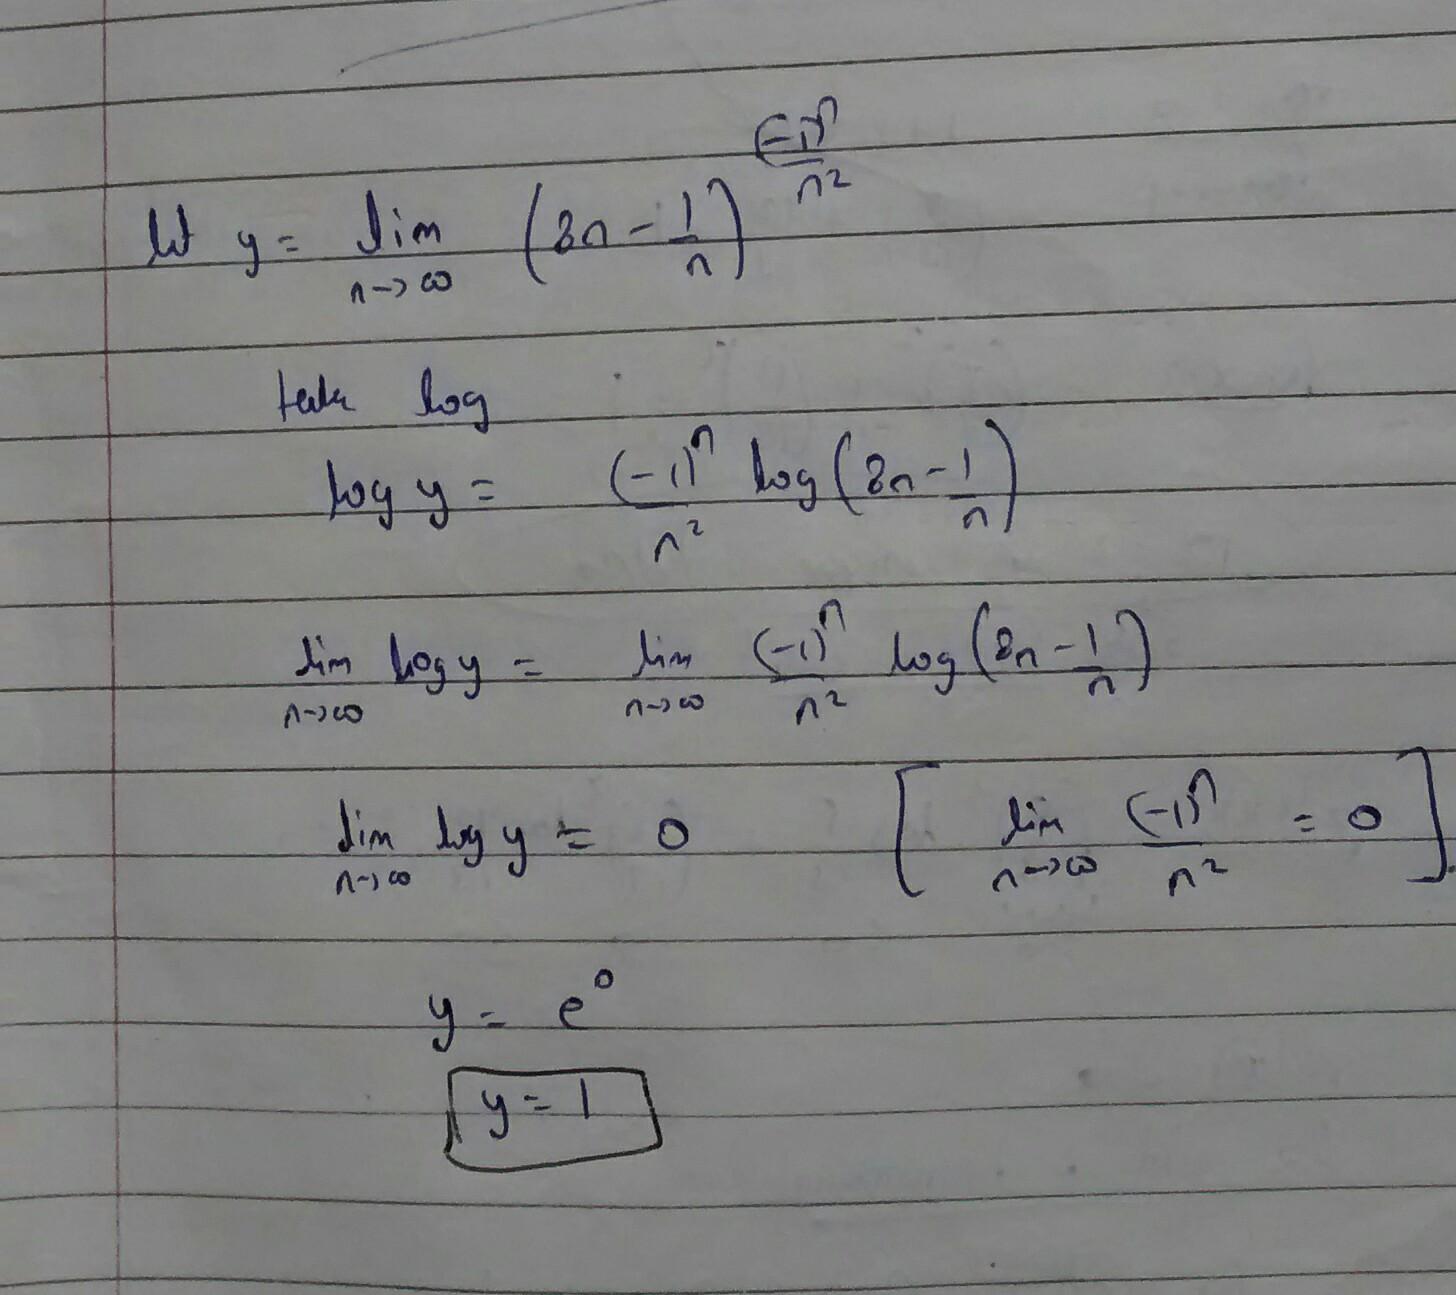 let y = lim n→∞ (2n - 1/n)^((-1)^n/n²)
take log
log y = (-1)^n/n² log (2n - 1/n)
lim n→∞ log y = lim n→∞ (-1)^n/n² log (2n - 1/n)
lim n→∞ log y = 0 [lim n→∞ (-1)^n/n² = 0].
y = e^0
y = 1